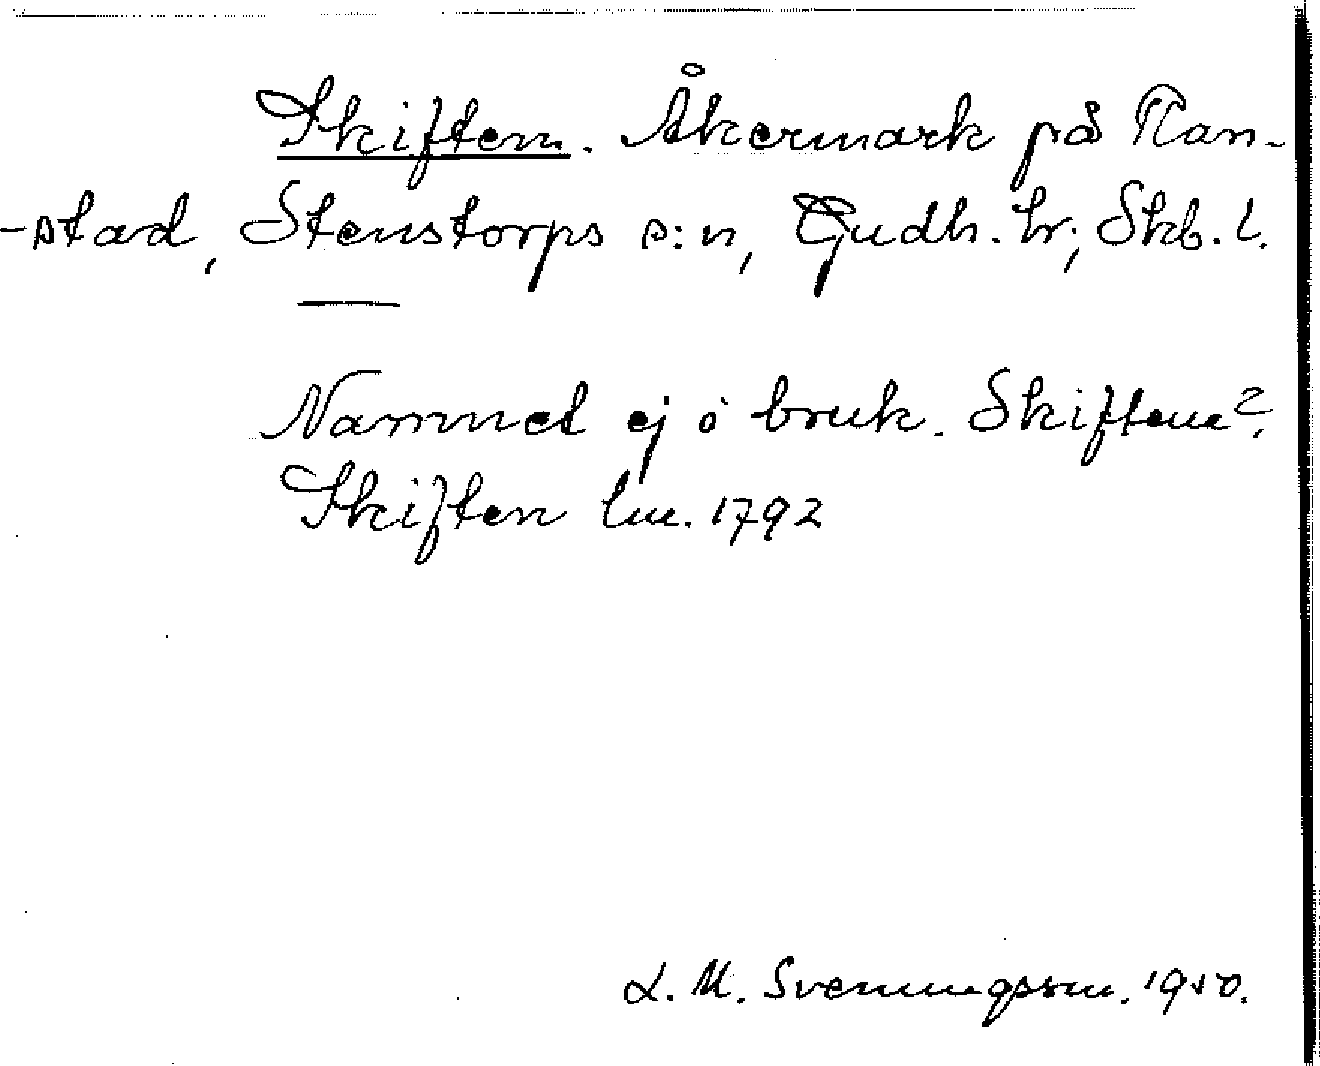 Skiften. Åkermark på Ran-
-stad, Stenstorps s:n, Gudh. hr; Skb. l.
Namnet ej i bruk. Skiftena?
Skiften lm. 1792
L. M. Svenungsson. 1950.